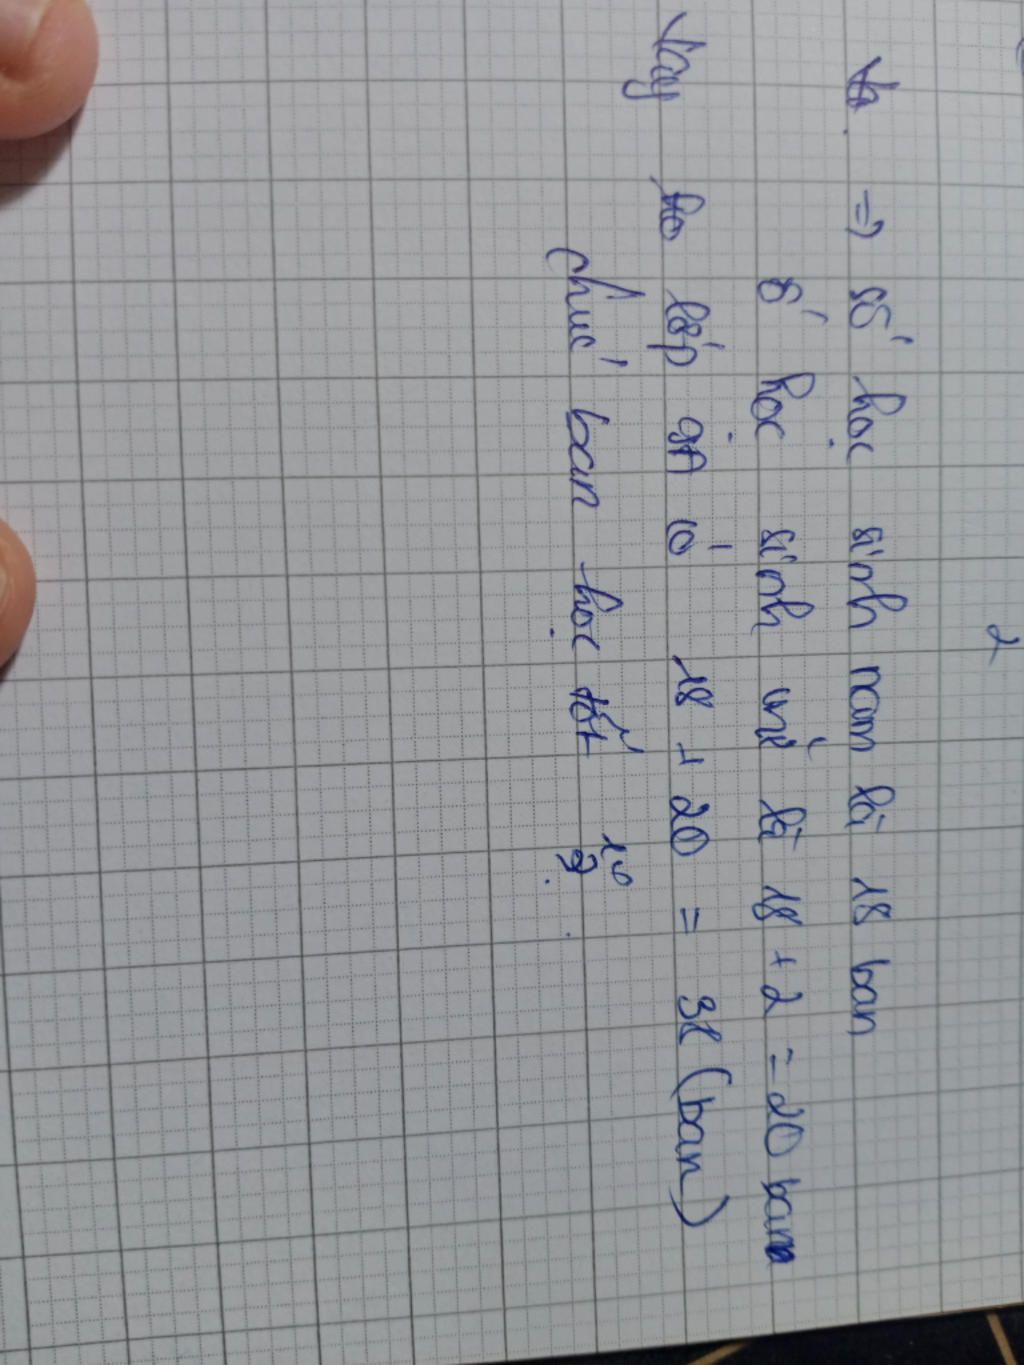 2
Va. => số học sinh nam là 18 ban
ố học sinh nữ là 18 + 2 = 20 ban
Vậy lớp 9A có 18 + 20 = 38 (ban)
Chúc ban học tốt